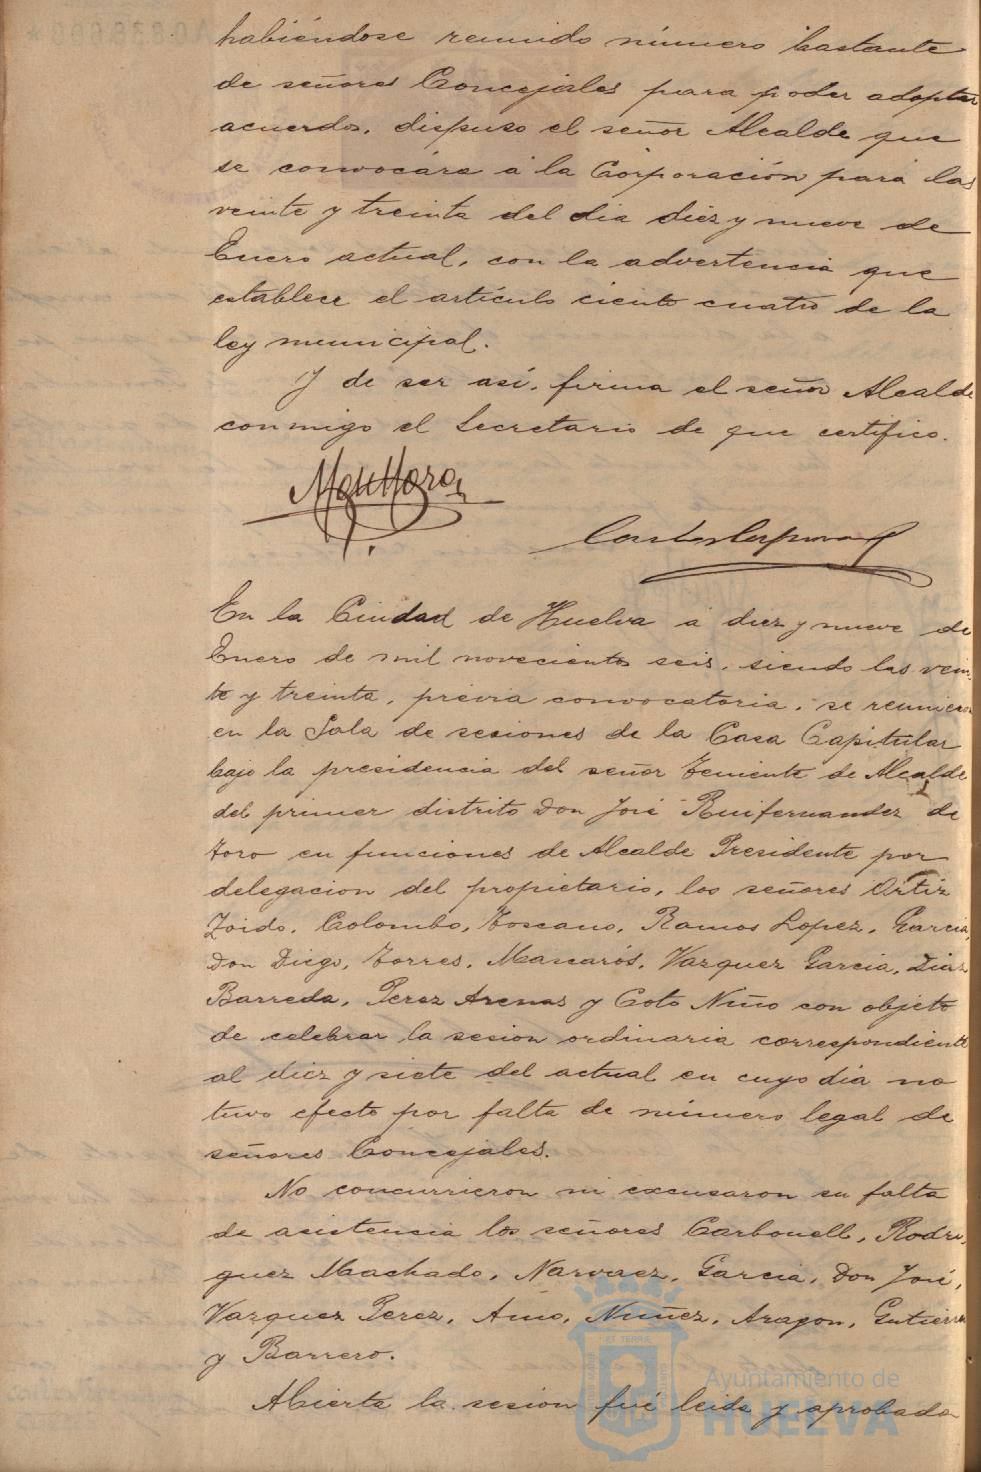 habiéndose reunido número bastante
de señores Concejales para poder adoptar
acuerdos, dispuso el señor Alcalde que
se convocára á la Corporación para las
veinte y treinta del dia diez y nueve de
Enero actual, con la advertencia que
establece el artículo ciento cuatro de la
ley municipal.
Y de ser así, firma el señor Alcalde
conmigo el Secretario de que certifico.
En la Ciudad de Huelva á diez y nueve de
Enero de mil novecientos seis, siendo las vein-
te y treinta, prévia convocatoria, se reunieron
en la Sala de sesiones de la Casa Capitular
bajo la presidencia del señor Teniente de Alcalde
del primer distrito Don José Ruifernandez de
Toro en funciones de Alcalde Presidente por
delegacion del propietario, los señores Ortiz
Zoido, Colombo, Toscano, Ramos Lopez, Garcia,
Don Diego, Torres, Mascarós, Vazquez Garcia, Diaz
Barreda, Perez Arenas y Coto Niño con objeto
de celebrar la sesion ordinaria correspondiente
al diez y siete del actual en cuyo dia no
tuvo efecto por falta de número legal de
señores Concejales.
No concurrieron ni excusaron su falta
de asistencia los señores Carbonell, Rodri-
guez Machado, Narvaez, Garcia, Don José,
Vazquez Perez, Amo, Nuñez, Aragon, Gutierrez
y Barrero.
Abierta la sesion fué leida y aprobada
Ayuntamiento de
HUELVA